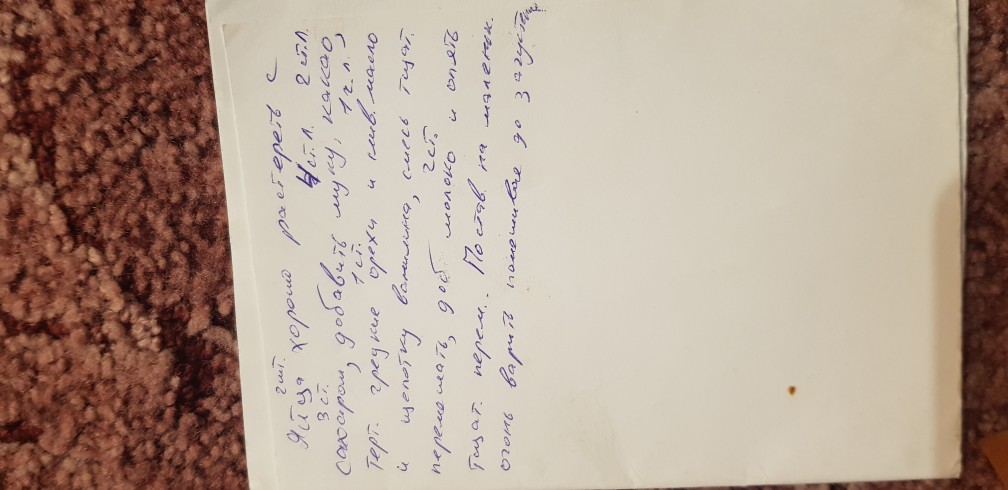 2 шт.
Яйца хорошо растереть с
3 ст. 4 ст. л. 2 ст. л.
сахаром, добавить муку, какао,
1 ст. 1 ч. л.
терт. грецкие орехи и слив. масло
и щепотку ванилина, смесь тщат.
2 ст.
перемешать, доб. молоко и опять
тщат. перем.. Постав на маленьк.
огонь варить помешивая до загустения..